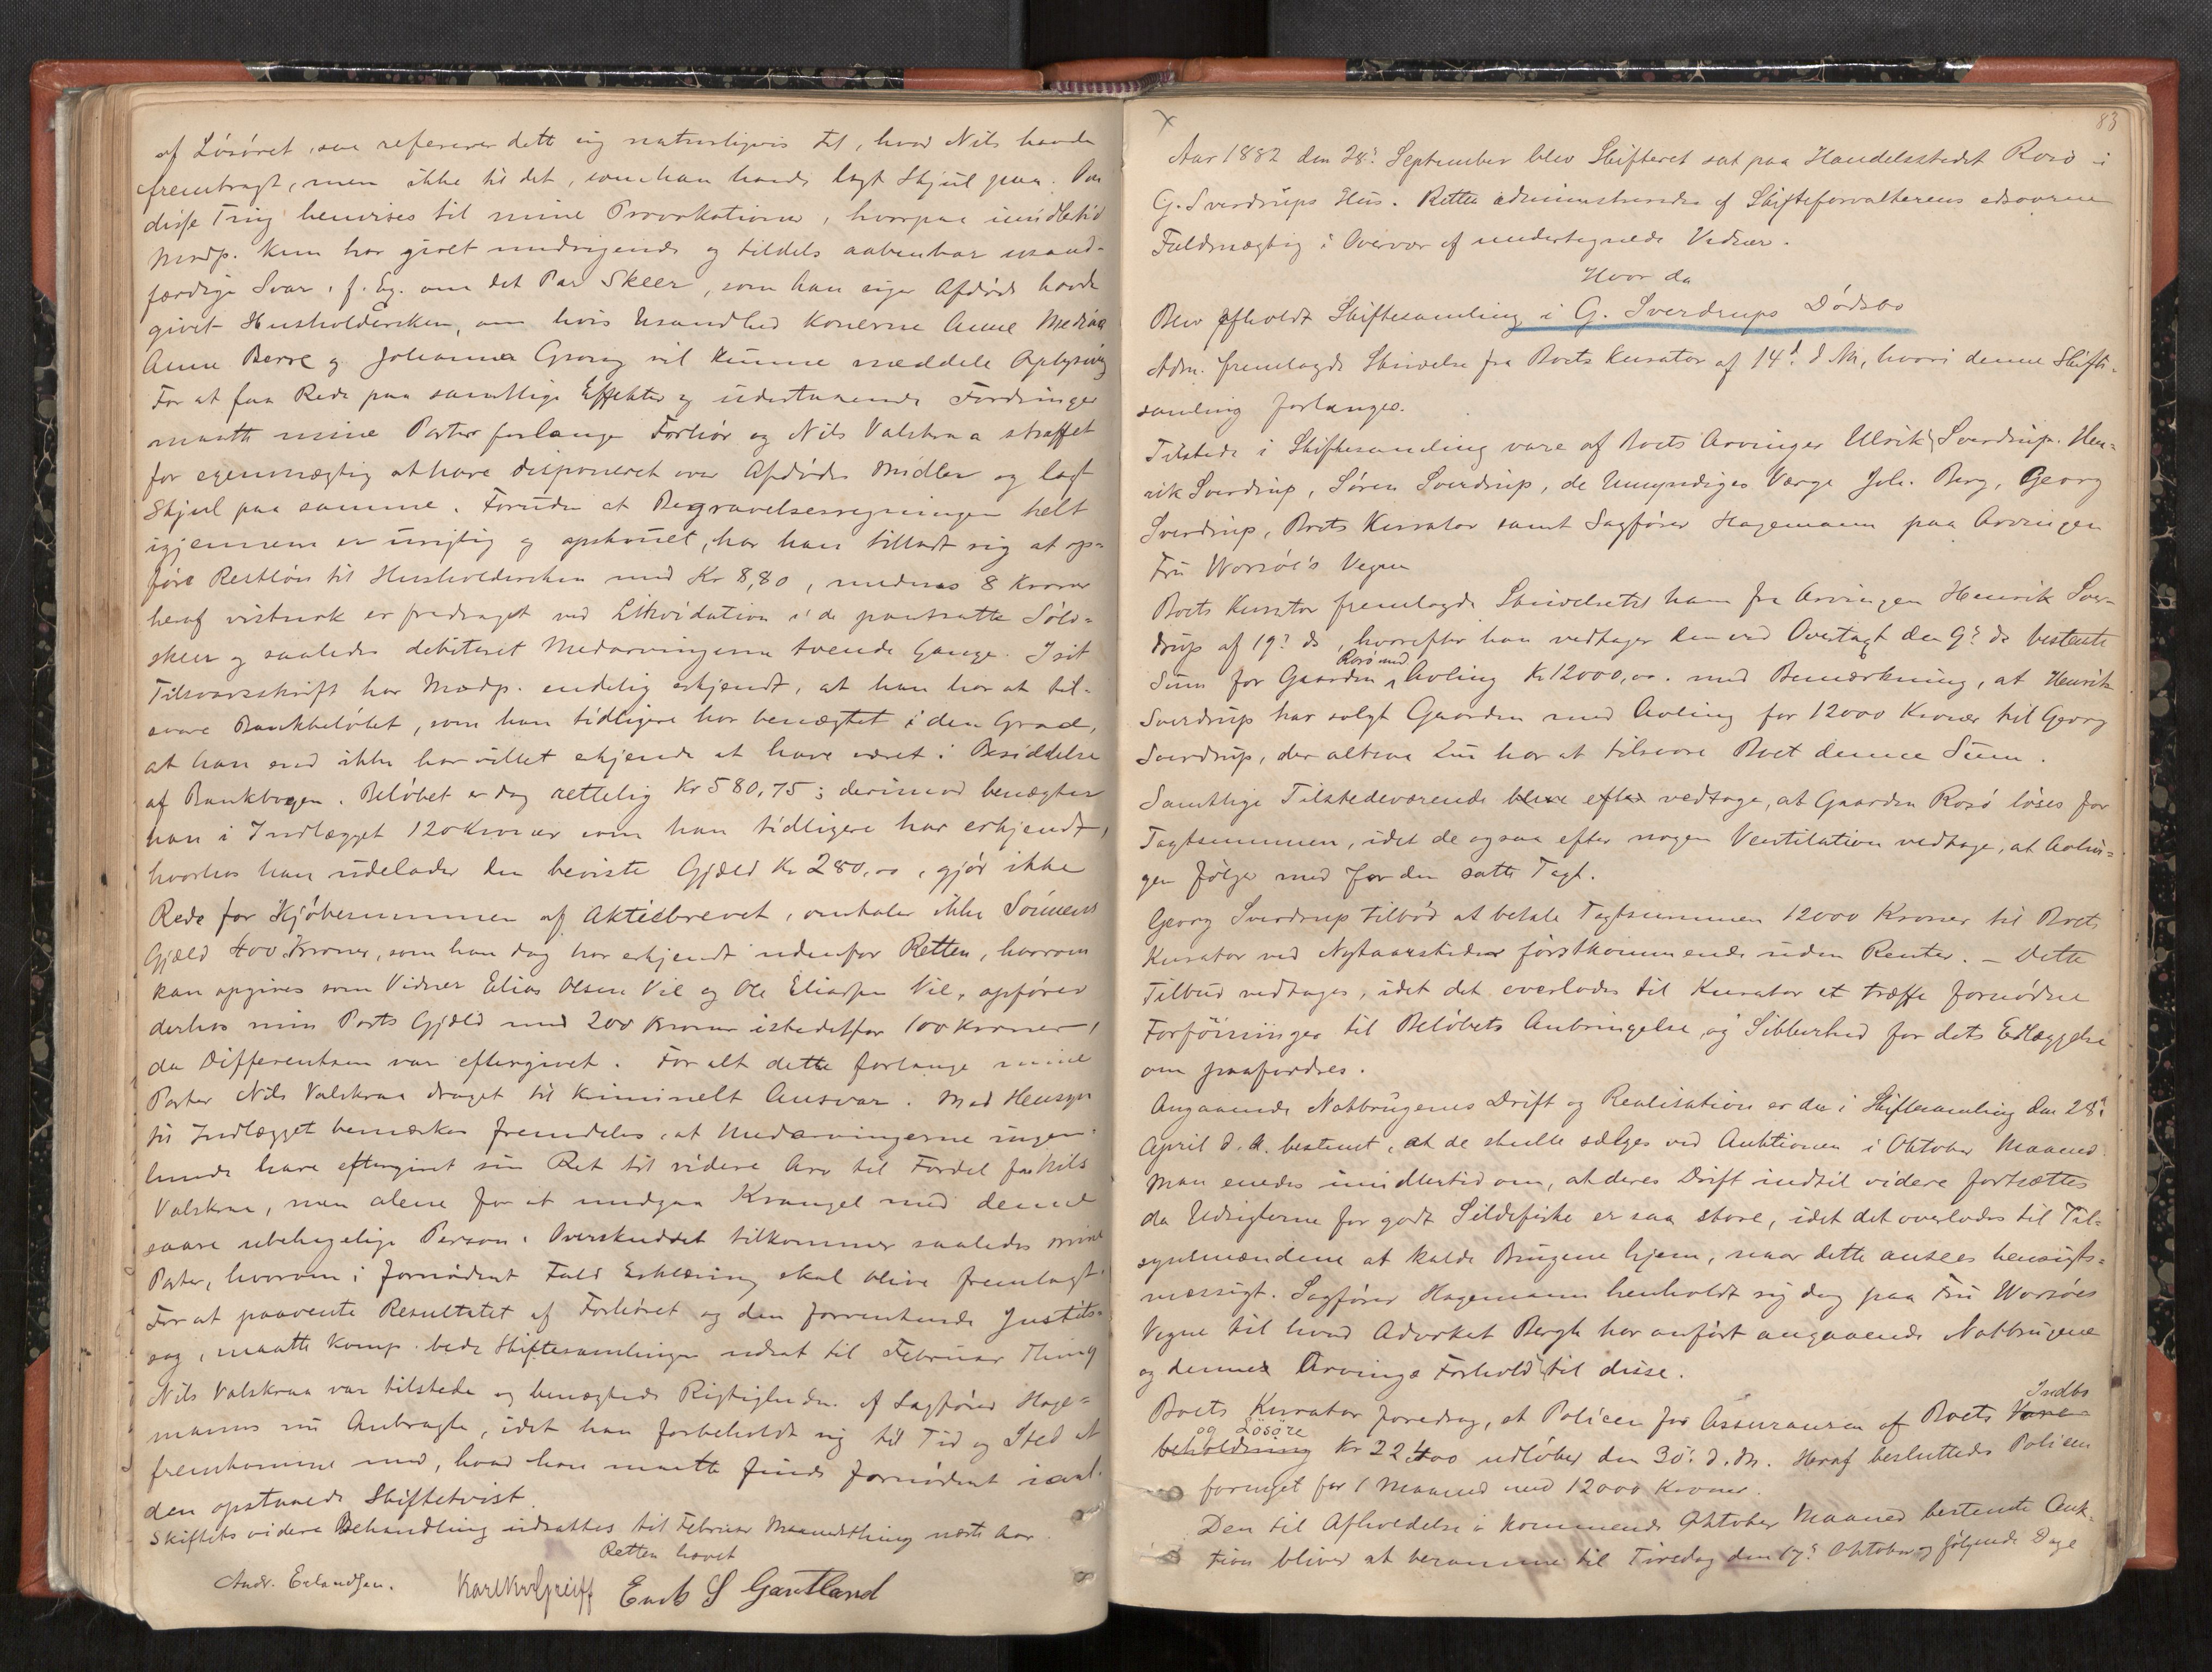 af Løsøret, saa refererer dette sig naturligvis til, hvad Nils havde
frembragt, men ikke til det, som han havde lagt Skjul paa. Om
disse Ting henvises til mine Provokationer, hvorpaa imidlertid
Modp. kun har givet undvigende og tildels aabenbar usand-
færdige Svar, f. Ex. om det Par Skeer, som han siger Afdøde havde
givet Husholdersken, om hvis Usandhed Konerne Anne
Anne Berre og Johanna Grong vil kunne meddele Oplysning
For at faa Rede paa samtlige Effekter og udestaaende Fordringer
maatte mine Parter forlange Forhør og Nils Valskraa straffet
for egenmægtig at have disponeret over Afdødes Midler og lagt
Skjul paa samme. Foruden at Begravelsesregningen helt
igjennem er urigtig og opskruet, har han tilladt sig at op-
føre Restløn til Husholdersken med Kr 8,80, medens 8 Kroner
heraf vistnok er fradraget ved Likvidation i de pantsatte Sølv-
skeer og saaledes debiteret Medarvingerne tvende Gange. I sit
Tilsvarsskrift har Modp. endelig erkjendt, at han har at til-
svare Bankbeløbet, som han tidligere har benægtet i den Grad,
at han end ikke har villet erkjende at have været i Besiddelse
af Bankbogen. Beløbet er dog rettelig Kr 580,75; derimod benægter
han i Indlægget 120 Kroner som han tidligere har erkjendt,
hvorhos han udelader den beviste Gjæld Kr 280,00, gjør ikke
Rede for Kjøbesummen af Aktiebrevet, omtaler ikke Sønnens
Gjæld 400 Kroner, som han dog har erkjendt udenfor Retten, hvorom
kan opgives som Vidner Elias Olsen Vie og Ole Eliassen Vie, opfører
derhos min Parts Gjæld med 200 Kroner istedetfor 100 Kroner,
da Differentsen var eftergivet. For alt dette forlange mine
Parter Nils Valskraa draget til kriminelt Ansvar. Med Hensyn
til Indlægget bemærkes fremdeles, at Medarvingerne ingen-
lunde have eftergivet sin Ret til videre Arv til Fordel for Nils
Valskraa, men alene for at undgaa Krangel med denne
saare ubehagelige Person. Overskuddet tilkommer saaledes mine
Parter, hvorom i fornødent Fald Erklæring skal blive fremlagt.
For at paavente Resultatet af Forhøret og den forventende Justits-
sag, maatte Komp. bede Skiftesamlingen udsat til Februar Thing
Nils Valskraa var tilstede og benægtede Rigtigheden af Sagfører Hage-
manns nu Anbragte, idet han forbeholdt sig til Tid og Sted at
fremkomme med, hvad han maatte finde fornødent i
den opstaaede Skiftetvist.
Skiftets videre Behandling udsattes til Februar Maanedsthing næste Aar
Retten hævet
Andr. Erlandsen. Karl Greiff Enok S Gartland
83
Aar 1882 den 28de September blev Skifteret sat paa Handelsstedet Rosø i
G. Sverdrups Hus. Retten administreredes af Skifteforvalterens edsvorne
Fuldmægtig i Overvær af undertegnede Vidner.
Hvor da
Blev afholdt Skiftesamling i G. Sverdrups Dødsbo
Adm. fremlagde Skrivelse fra Boets Kurator af 14d. d. M., hvori denne Skifte-
samling forlanges.
Tilstede i Skiftesamling vare af Boets Arvinger Ulrik Sverdrup. Hen-
rik Sverdrup, Søren Sverdrup, de Umyndiges Værge Joh. Berg, Georg
Sverdrup, Boets Kurator samt Sagfører Hagemann paa Arvingen
Fru Worsøe's Vegne
Boets Kurator fremlagde Skrivelse til ham fra Arvingen Henrik Sver-
drup af 19de ds, hvorefter han vedtager den ved Overtagt den 9de ds bestemte
Sum for Gaarden Rosø med Avling Kr 12000,00. med Bemærkning, at Henrik
Sverdrup har solgt Gaarden med Avling for 12000 Kroner til Georg
Sverdrup, der altsaa nu har at tilsvare Boet denne Sum.
Samtlige Tilstedeværende bleve efter vedtage, at Gaarden Rosø løses for
Tagtsummen, idet de ogsaa efter nogen Ventilation vedtage, at Avlin-
gen følger med for den satte Tagt.
Georg Sverdrup tilbød at betale Tagtsummen 12000 Kroner til Boets
Kurator ved Nytaarstider førstkommende uden Renter. – Dette
Tilbud vedtages, idet det overlodes til Kurator at træffe fornødne
Forføininger til Beløbets Anbringelse og Sikkerhed for dets Erlæggelse
om paafordres.
Angaaende Notbrugenes Drift og Realisation er der i Skiftesamling den 28de
April d. A. bestemt, at de skulle sælges ved Auktionen i Oktober Maaned.
Man enedes imidlertid om, at deres Drift indtil videre fortsættes
da Udsigterne for godt Sildefiske er saa store, idet det overlodes til Til-
synsmændene at kalde Brugene hjem, naar dette ansees hensigts-
mæssigt. Sagfører Hagemann henholdt sig dog paa Fru Worsøes
Vegne til hvad Advokat Bergh har anført angaaende Notbrugene
og dennes Arvings Forhold til disse.
Boets Kurator foredrog, at Policen for Assurancen af Boets Vare- Indbo
beholdning og Løsøre Kr 22,400 udløber den 30de d. M. Heraf besluttedes Policen
fornyet for 1 Maaned med 12000 Kroner.
Den til Afholdelse i kommende Oktober Maaned bestemte Auk-
tion bliver at beramme til Tirsdag den 17de Oktober og følgende Dage